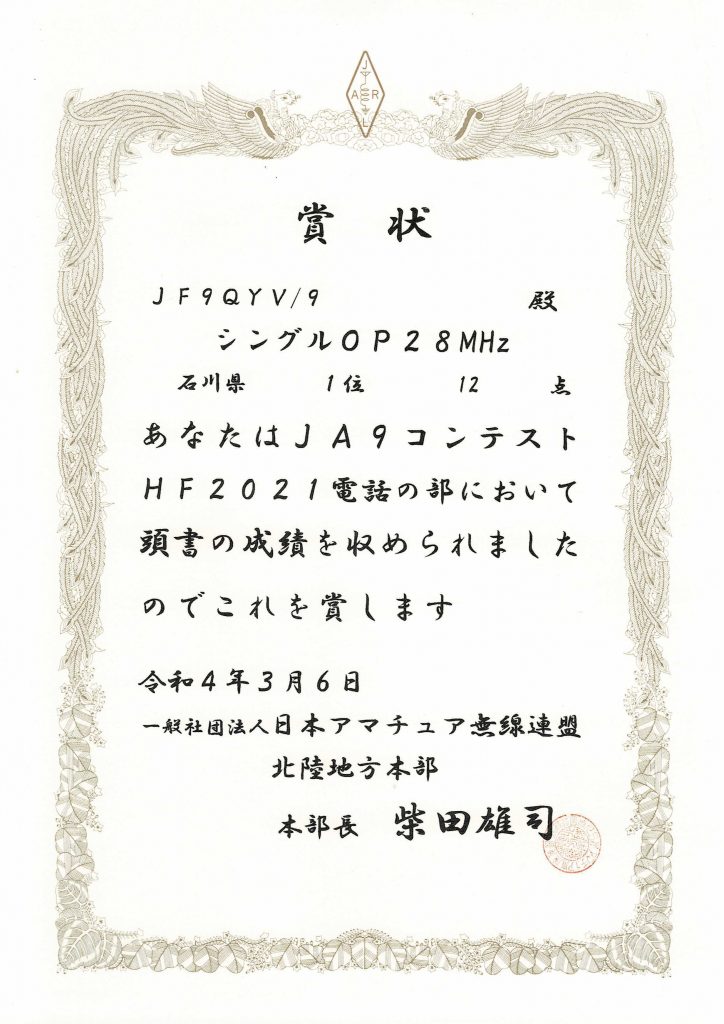 JARL
賞状
JF9QYV/9 殿
シングルOP28MHz
石川県 1位 12 点
あなたはJA9コンテスト
HF2021電話の部において
頭書の成績を収められました
のでこれを賞します
令和4年3月6日
一般社団法人日本アマチュア無線連盟
北陸地方本部
本部長 柴田雄司